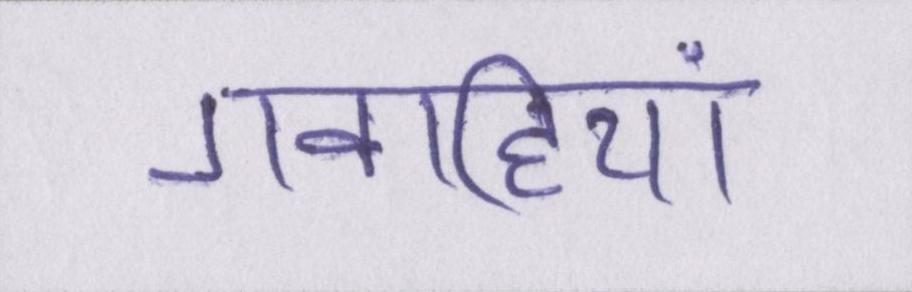 गवाहियां